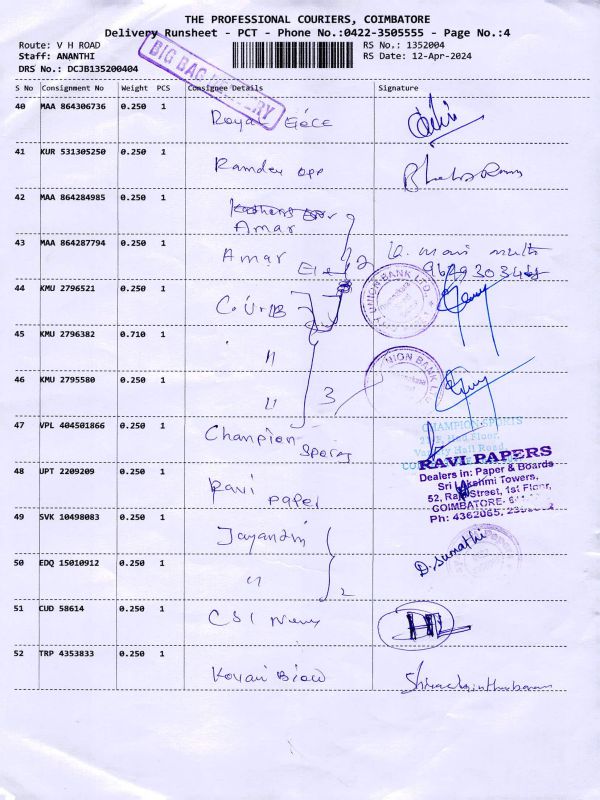 THE PROFESSIONAL COURIERS, COIMBATORE
Delivery Runsheet - PCT - Phone No.:0422-3505555 - Page No.:4
Route: V H ROAD
RS No.: 1352004
Staff: ANANTHI
RS Date: 12-Apr-2024
DRS No.: DCJB135200404
BIG BAG DELIVERY
S No Consignment No Weight PCS Consignee Details Signature
40 MAA 864306736 0.250 1 Royal
41 KUR 531305250 0.250 1 Ramdev
42 MAA 864284985 0.250 1 Amar
43 MAA 864287794 0.250 1 Amar
44 KMU 2796521 0.250 1 C.U.B
CITY UNION BANK LTD.
45 KMU 2796382 0.710 1 "
46 KMU 2795580 0.250 1 " 3
UNION BANK LTD
47 VPL 404501866 0.250 1 Champion Sports
CHAMPION SPORTS
48 UPT 2209209 0.250 1 Ravi Paper
RAVI PAPERS
Dealers in: Paper & Boards
Sri Lakshmi Towers,
52, Raja Street, 1st Floor,
COIMBATORE-
Ph: 4362065,
49 SVK 10498083 0.250 1 Jayanthi
50 EDQ 15010912 0.250 1 " 2
D. Sumathi
51 CUD 58614 0.250 1 CSI News
52 TRP 4353833 0.250 1 Kovai